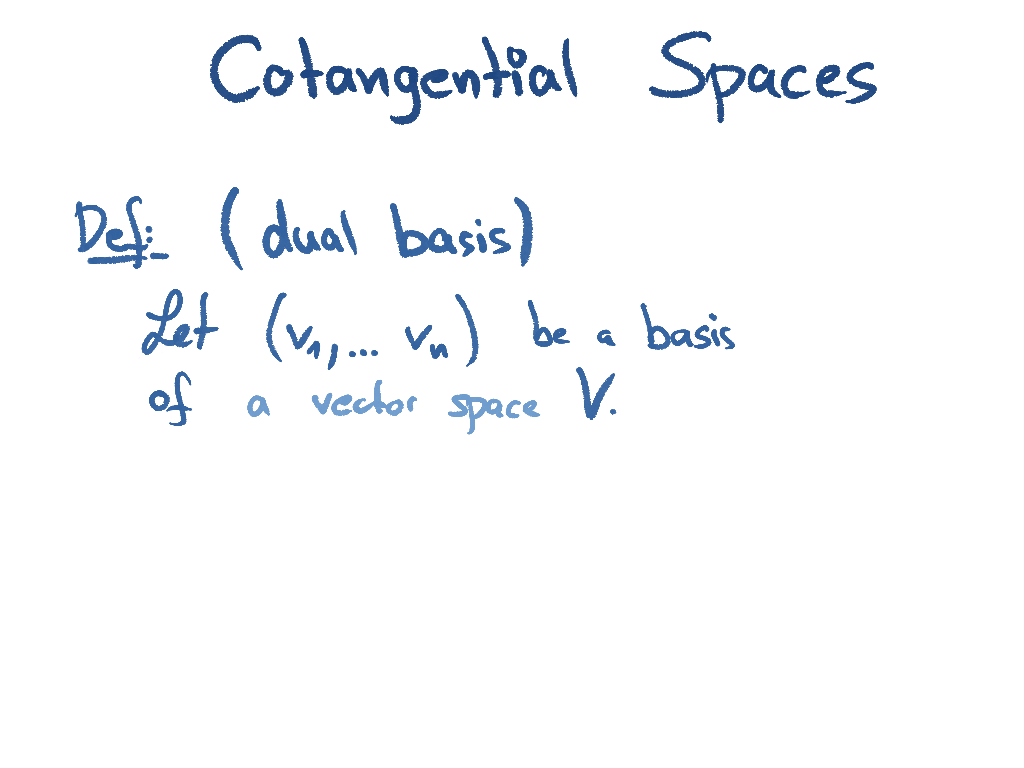 Cotangential Spaces
Def: (dual basis)
Let (v₁,... vₙ) be a basis
of a vector space V.